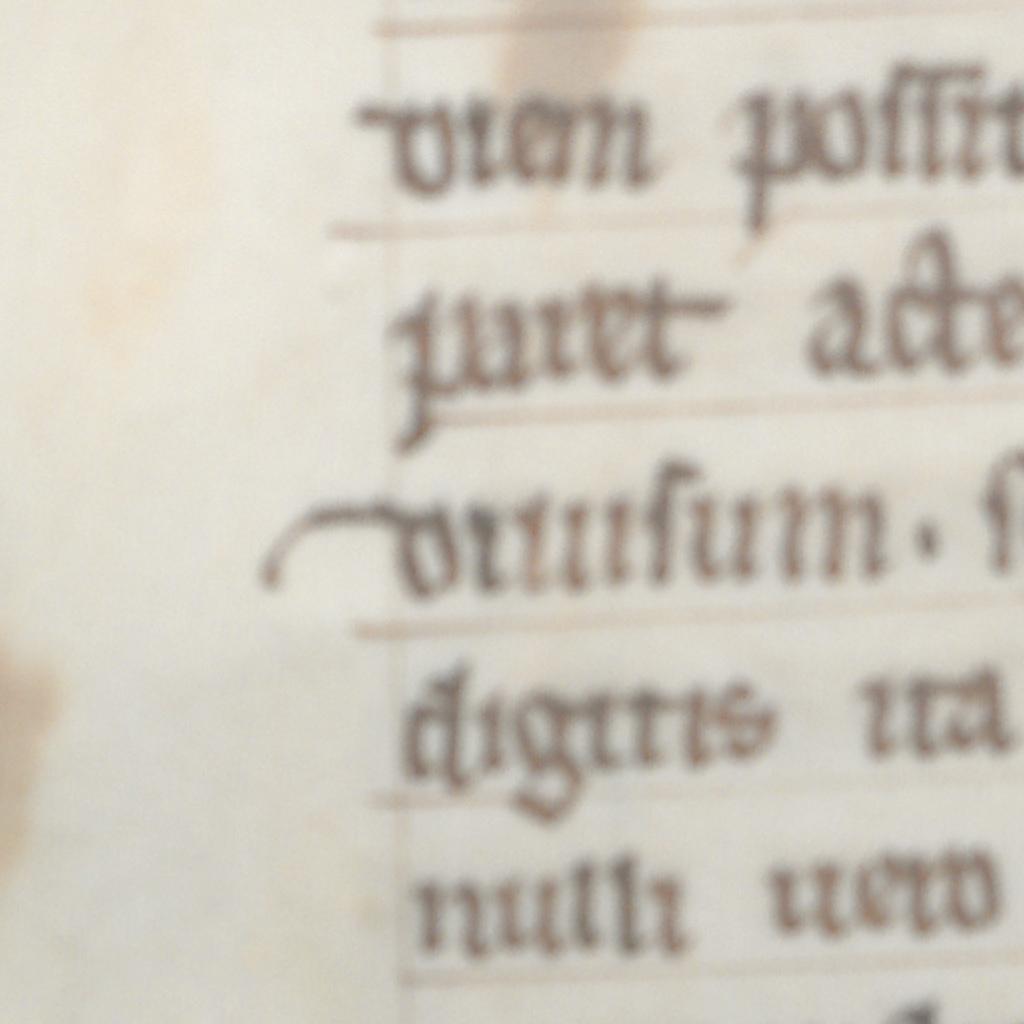 diem possit
iuret acte
diuisum. s
digitis ita
nulli uero